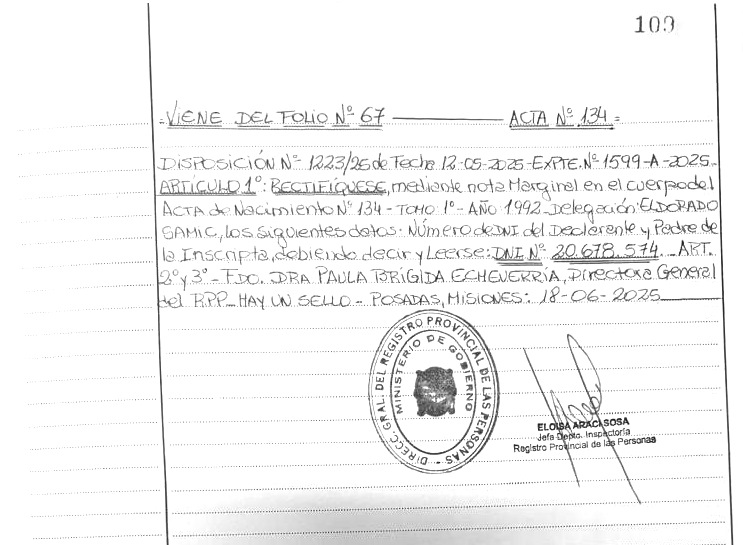 109
=VIENE DEL FOLIO Nº 67 ——— ACTA Nº 134=
DISPOSICIÓN Nº 1223/25 de Fecha 12-05-2025-EXPTE.Nº 1599-A-2025-
ARTÍCULO 1º: RECTIFÍQUESE, mediante nota Marginal en el cuerpo del
ACTA de Nacimiento Nº 134-TOMO 1º-AÑO 1992-Delegación ELDORADO
SAMIC, los siguientes datos: Número de DNI del Declarante y Padre de
la Inscripta, debiendo decir y Leerse: DNI Nº 20.678.574. ART.
2º y 3º-FDO. DRA PAULA BRÍGIDA ECHEVERRÍA, Directora General
del RPP-HAY UN SELLO-POSADAS, MISIONES: 18-06-2025
DIRECC. GRAL. DEL REGISTRO PROVINCIAL DE LAS PERSONAS
MINISTERIO DE GOBIERNO
ELOISA ARACI SOSA
Jefa Depto. Inspectoría
Registro Provincial de las Personas